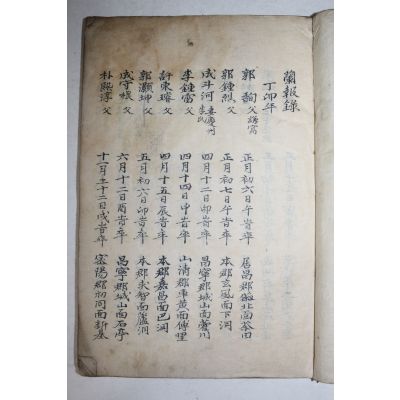 蘭報錄
丁卯年
郭 翰 父 諱富 正月初六日午時卒 居昌郡加北面茶田
郭鍾烈 父 正月初七日午時卒 本郡玄風面下洞
成斗河 妻慶州李氏 四月十二日卯時卒 昌寧郡城山面蘆川
李鍾雷 父 四月十四日申時卒 山清郡車黃面傅里
許東璿 父 四月十五日辰時卒 本郡嘉昌面巴洞
郭灝坤 父 五月初六日卯時卒 本郡求智面蘆洞
成守根 父 六月十二日酉時卒 昌寧郡城山面石亭
朴熙淳 父 十一月二十二日戌時卒 密陽郡初同面新基